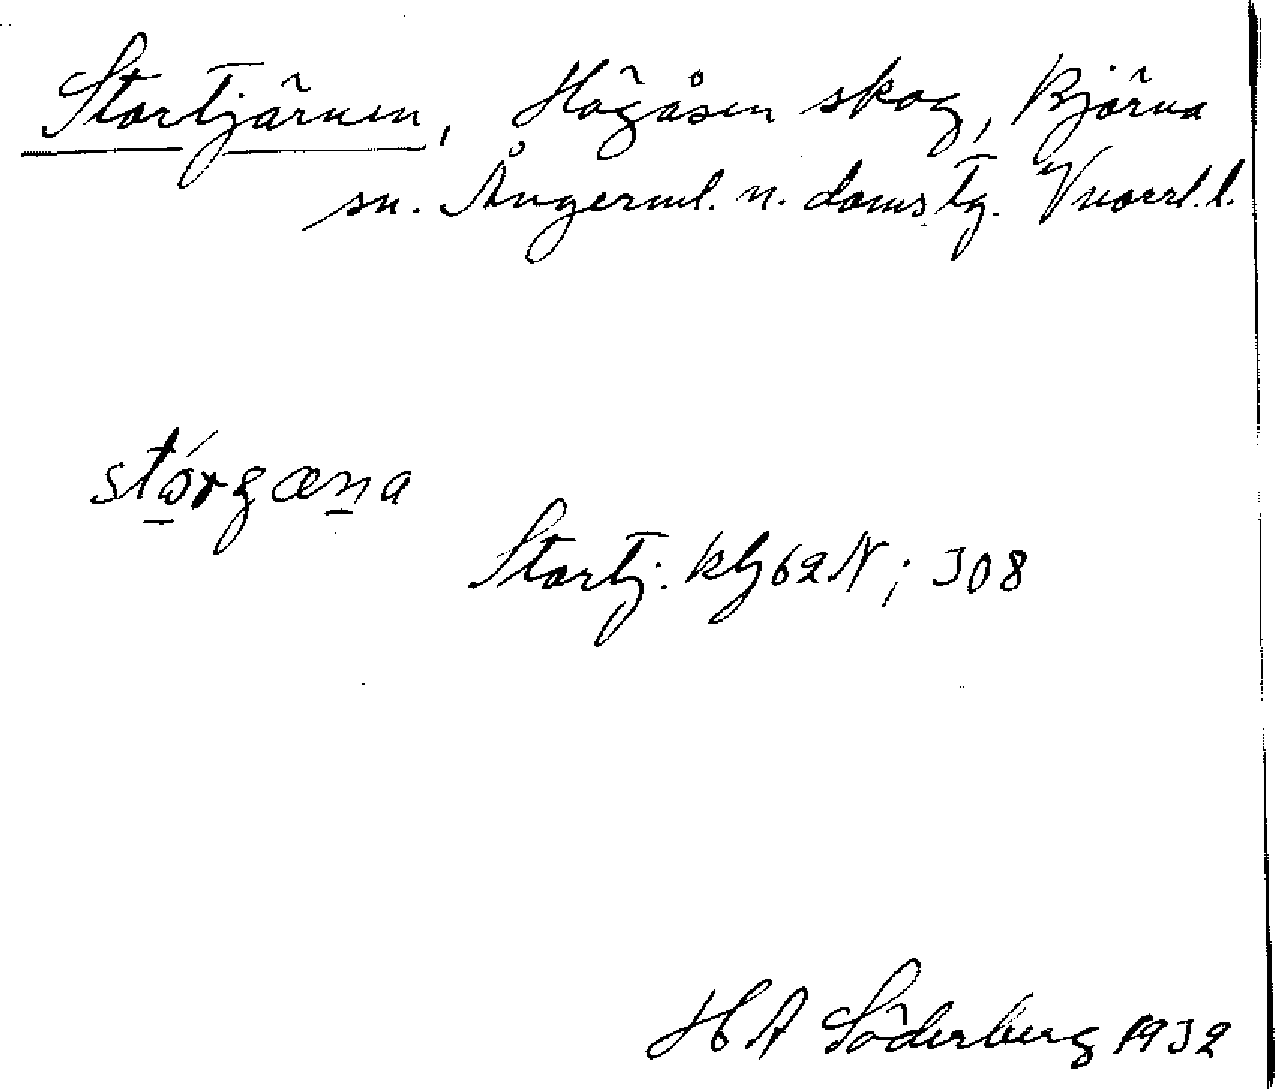 Stortjärnen, Högåsen skog, Björna
sn. Ångerml. n. doms.tg. Vnorrl. l.
stórgæna
Stortj. kbj 62 N; 308
H A Söderberg 1932